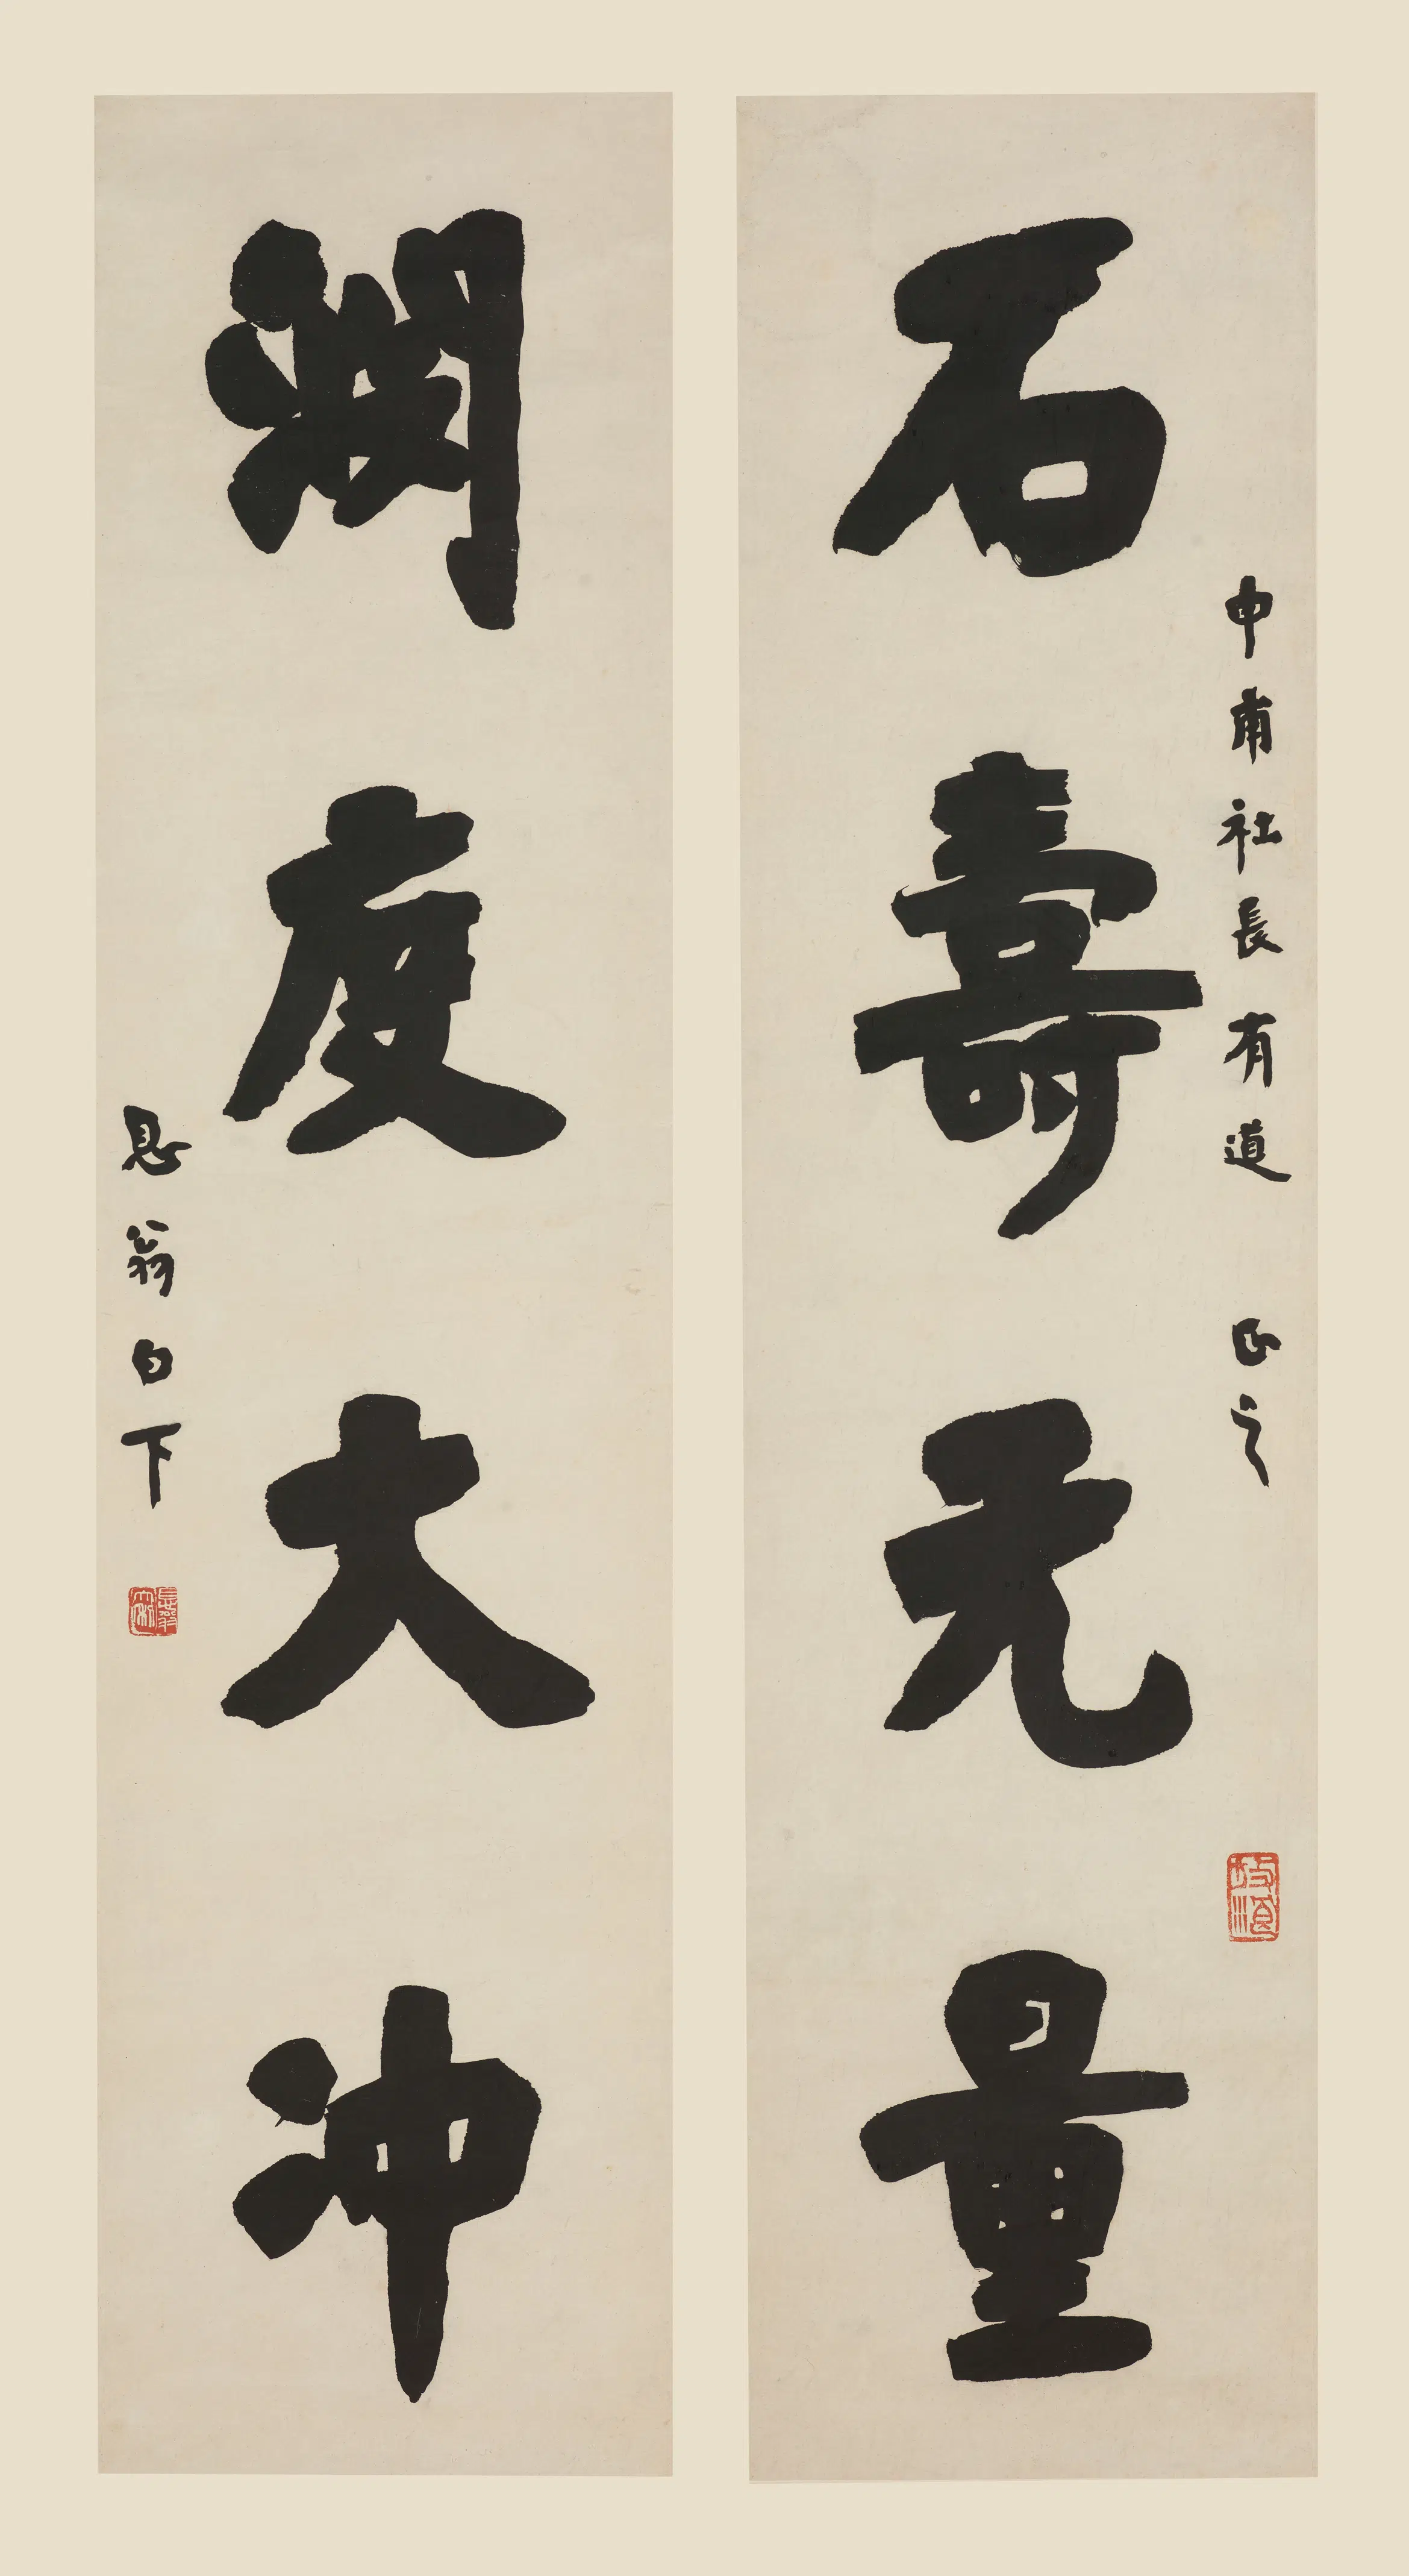 石壽无量
申甫社長有道 正之
度大冲
翁白下